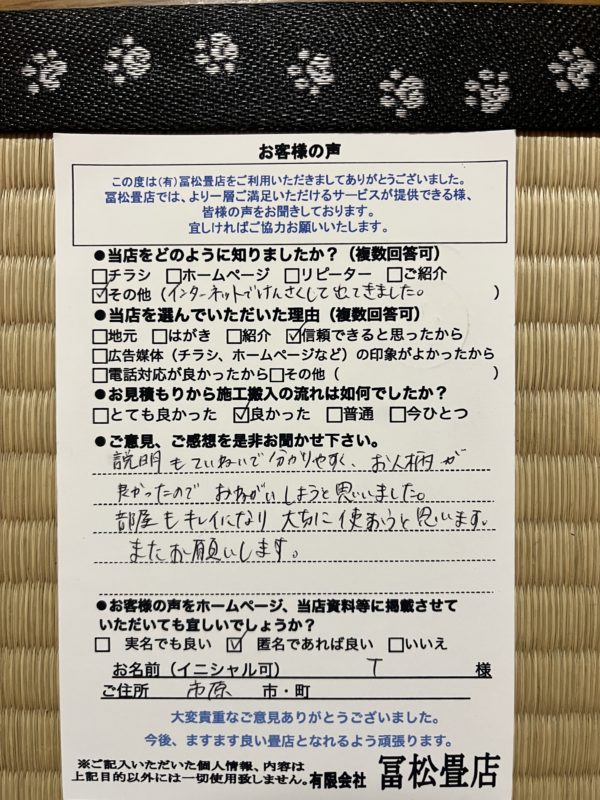 お客様の声
この度は(有)冨松畳店をご利用いただきましてありがとうございました。
冨松畳店では、より一層ご満足いただけるサービスが提供できる様、
皆様の声をお聞きしております。
宜しければご協力お願いいたします。
●当店をどのように知りましたか？（複数回答可）
□チラシ □ホームページ □リピーター □ご紹介
☑その他（インターネットでけんさくしてでてきました。）
●当店を選んでいただいた理由（複数回答可）
□地元 □はがき □紹介 ☑信頼できると思ったから
□広告媒体（チラシ、ホームページなど）の印象がよかったから
□電話対応が良かったから□その他（ ）
●お見積もりから施工搬入の流れは如何でしたか？
□とても良かった ☑良かった □普通 □今ひとつ
●ご意見、ご感想を是非お聞かせ下さい。
説明もていねいで分かりやすく、お人柄が
良かったので おねがいしようと思いました。
部屋もキレイになり 大切に使おうと思います。
またお願いします。
●お客様の声をホームページ、当店資料等に掲載させて
いただいても宜しいでしょうか？
□ 実名でも良い ☑ 匿名であれば良い □いいえ
お名前（イニシャル可） T 様
ご住所 市原 市・町
大変貴重なご意見ありがとうございました。
今後、ますます良い畳店となれるよう頑張ります。
※ご記入いただいた個人情報、内容は
上記目的以外には一切使用致しません。有限会社 冨松畳店